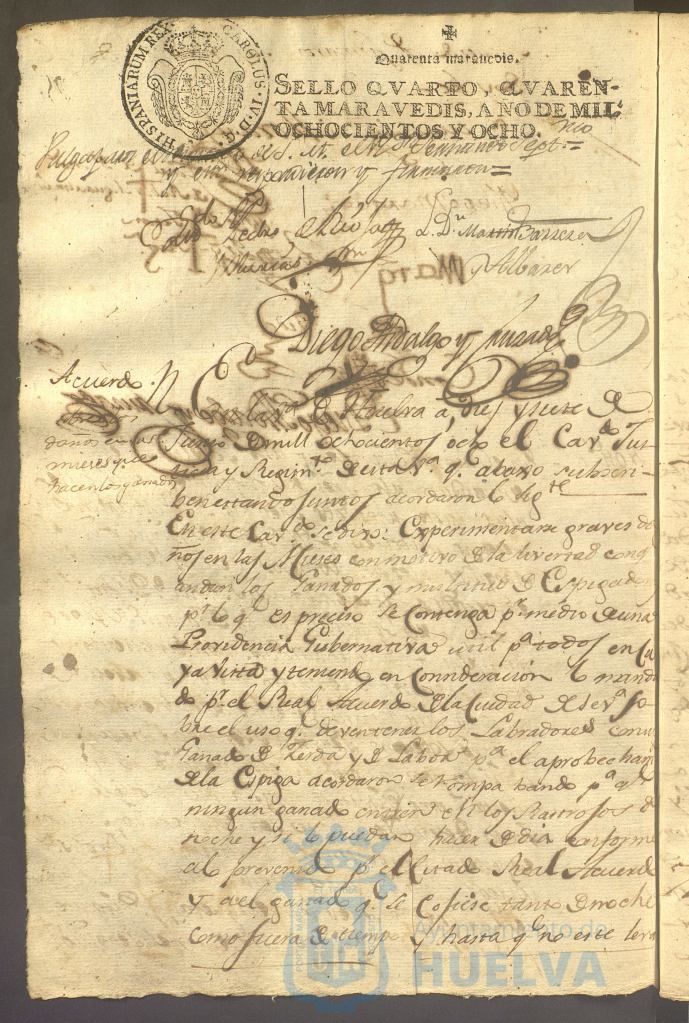 HISPANIARUM REX CAROLUS IV D G
Quarenta maravedis.
SELLO QVARTO, QVAREN-
TA MARAVEDIS, AÑO DE MIL
OCHOCIENTOS Y OCHO.
de S. M. el Sr Dn Fernando Sept.=
y firmaron=
Pedro L. Dn Martin Barrera
y Albarer
Diego Hidalgo y
Acuerdo
sobre los
daños en las
mieses qe
hacen los ganads
En la va D Huelva a dies y siete D
Junio D mill ochocientos ocho el Cavdo Jus
ticia y Regimto D esta Va qe abaxo subscri-
ben estando juntos acordaron lo sigte
En este Cavdo se dixo: Experimentarse graves da
ños en las Mieses con motivo D la livertad conq
andan los Ganados y multitud D Espigador
pr lo qe es preciso se contenga pr medio D una
Providencia Gubernativa util pa todos en Cu
ya vista y teniendo en Consideracion lo manda
do pr el Real Acuerdo D la Ciudad D Seva so
bre el uso qe deven tener los Labradores con su
Ganado D Zerda y D Labor pa el aprobecham
D la Espiga acordaron se rompa bando pa qe
ningun ganado entre en los Rastrojos d
noche y si lo puedan hacer D dia conforme
al prevenido pr el citado Real Acuerdo
y a el ganado qe se Cojiese tanto D noche
como fuera D tiempo y hasta qe no este leva
Ayuntamiento de
HUELVA